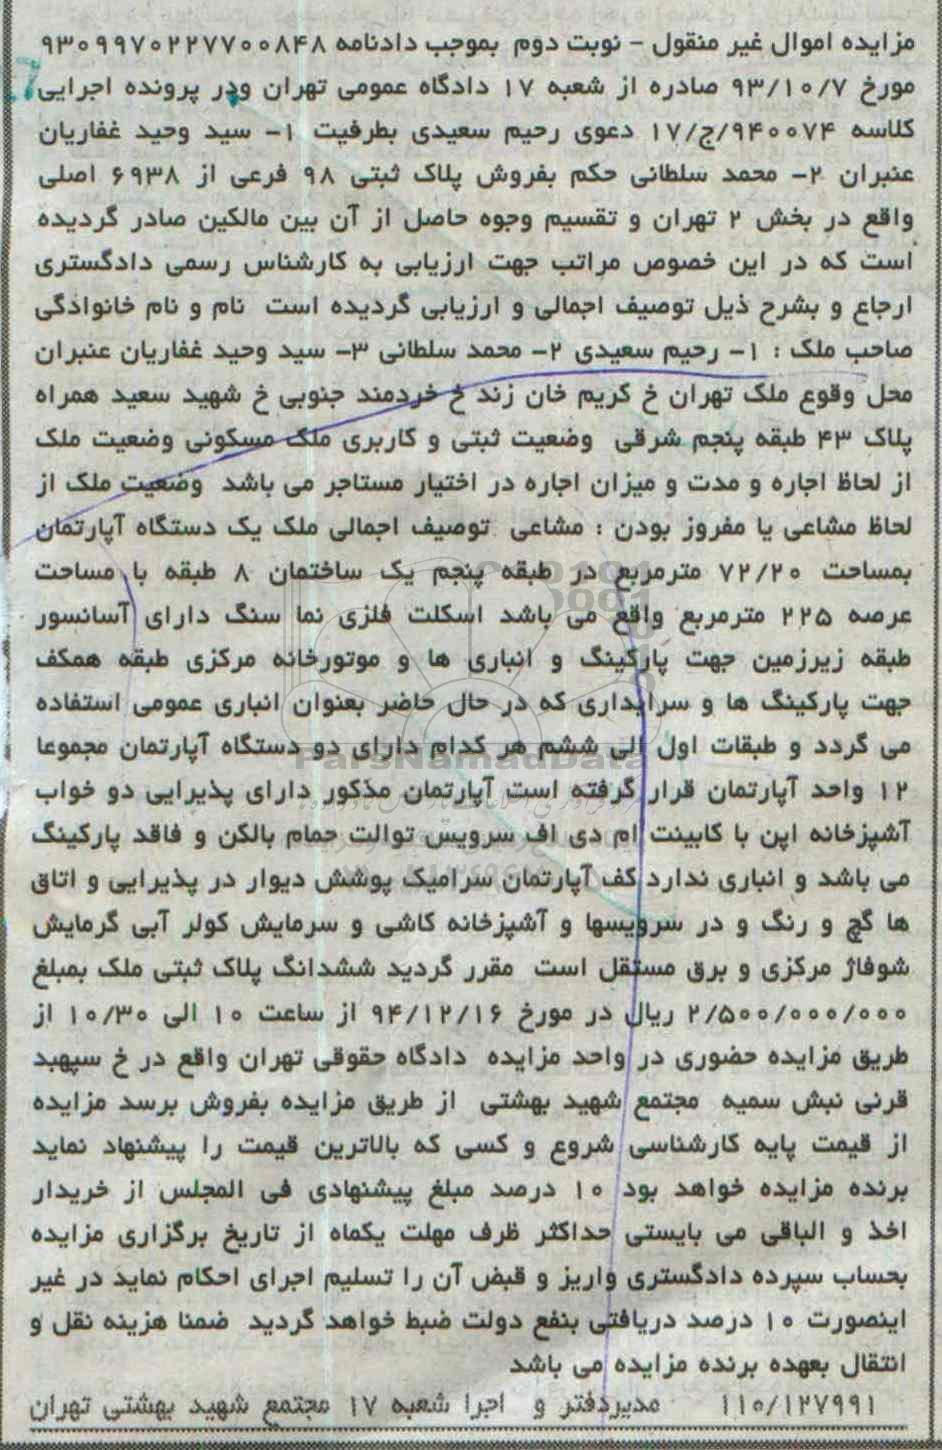 مزایده اموال غیر منقول - نوبت دوم بموجب دادنامه ۹۳۰۹۹۷۰۲۲۷۷۰۰۸۴۸
مورخ ۹۳/۱۰/۷ صادره از شعبه ۱۷ دادگاه عمومی تهران ودر پرونده اجرایی
کلاسه ۹۴۰۰۷۴/ج/۱۷ دعوی رحیم سعیدی بطرفیت ۱- سید وحید غفاریان
عنبران ۲- محمد سلطانی حکم بفروش پلاک ثبتی ۹۸ فرعی از ۶۹۳۸ اصلی
واقع در بخش ۲ تهران و تقسیم وجوه حاصل از آن بین مالکین صادر گردیده
است که در این خصوص مراتب جهت ارزیابی به کارشناس رسمی دادگستری
ارجاع و بشرح ذیل توصیف اجمالی و ارزیابی گردیده است نام و نام خانوادگی
صاحب ملک : ۱- رحیم سعیدی ۲- محمد سلطانی ۳- سید وحید غفاریان عنبران
محل وقوع ملک تهران خ کریم خان زند خ خردمند جنوبی خ شهید سعید همراه
پلاک ۴۳ طبقه پنجم شرقی وضعیت ثبتی و کاربری ملک مسکونی وضعیت ملک
از لحاظ اجاره و مدت و میزان اجاره در اختیار مستاجر می باشد وضعیت ملک از
لحاظ مشاعی یا مفروز بودن : مشاعی توصیف اجمالی ملک یک دستگاه آپارتمان
بمساحت ۷۲/۲۰ مترمربع در طبقه پنجم یک ساختمان ۸ طبقه با مساحت
عرصه ۲۲۵ مترمربع واقع می باشد اسکلت فلزی نما سنگ دارای آسانسور
طبقه زیرزمین جهت پارکینگ و انباری ها و موتورخانه مرکزی طبقه همکف
جهت پارکینگ ها و سرایداری که در حال حاضر بعنوان انباری عمومی استفاده
می گردد و طبقات اول الی ششم هر کدام دارای دو دستگاه آپارتمان مجموعا
۱۲ واحد آپارتمان قرار گرفته است آپارتمان مذکور دارای پذیرایی دو خواب
آشپزخانه اپن با کابینت ام دی اف سرویس توالت حمام بالکن و فاقد پارکینگ
می باشد و انباری ندارد کف آپارتمان سرامیک پوشش دیوار در پذیرایی و اتاق
ها گچ و رنگ و در سرویسها و آشپزخانه کاشی و سرمایش کولر آبی گرمایش
شوفاژ مرکزی و برق مستقل است مقرر گردید ششدانگ پلاک ثبتی ملک بمبلغ
۲/۵۰۰/۰۰۰/۰۰۰ ریال در مورخ ۹۴/۱۲/۱۶ از ساعت ۱۰ الی ۱۰/۳۰ از
طریق مزایده حضوری در واحد مزایده دادگاه حقوقی تهران واقع در خ سپهبد
قرنی نبش سمیه مجتمع شهید بهشتی از طریق مزایده بفروش برسد مزایده
از قیمت پایه کارشناسی شروع و کسی که بالاترین قیمت را پیشنهاد نماید
برنده مزایده خواهد بود ۱۰ درصد مبلغ پیشنهادی فی المجلس از خریدار
اخذ و الباقی می بایستی حداکثر ظرف مهلت یکماه از تاریخ برگزاری مزایده
بحساب سپرده دادگستری واریز و قبض آن را تسلیم اجرای احکام نماید در غیر
اینصورت ۱۰ درصد دریافتی بنفع دولت ضبط خواهد گردید ضمنا هزینه نقل و
انتقال بعهده برنده مزایده می باشد
۱۱۰/۱۲۷۹۹۱ مدیردفتر و اجرا شعبه ۱۷ مجتمع شهید بهشتی تهران
ParsNamadData